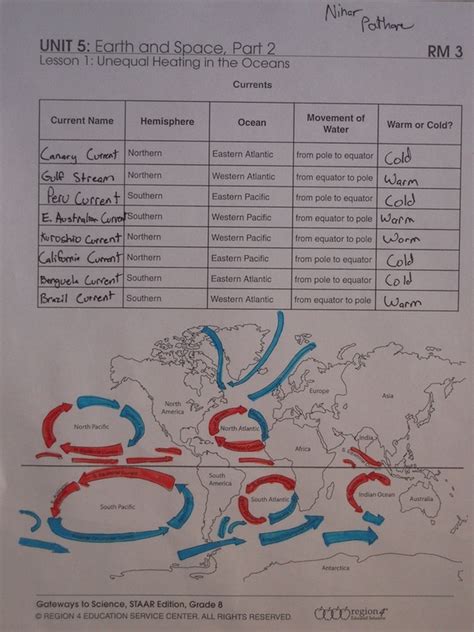 Nihar
Pothare
UNIT 5: Earth and Space, Part 2
RM 3
Lesson 1: Unequal Heating in the Oceans
Currents
Current Name Hemisphere Ocean Movement of Water Warm or Cold?
Canary Current Northern Eastern Atlantic from pole to equator Cold
Gulf Stream Northern Western Atlantic from equator to pole Warm
Peru Current Southern Eastern Pacific from pole to equator Cold
E. Australian Current Southern Western Pacific from equator to pole Warm
Kuroshio Current Northern Western Pacific from equator to pole Warm
California Current Northern Eastern Pacific from pole to equator Cold
Benguela Current Southern Eastern Atlantic from pole to equator Cold
Brazil Current Southern Western Atlantic from equator to pole Warm
North America
Europe
Asia
North Pacific
North Atlantic
Africa
India
South America
South Pacific
South Atlantic
Indian Ocean
Australia
Antarctica
Gateways to Science, STAAR Edition, Grade 8
© REGION 4 EDUCATION SERVICE CENTER. ALL RIGHTS RESERVED.
region 4